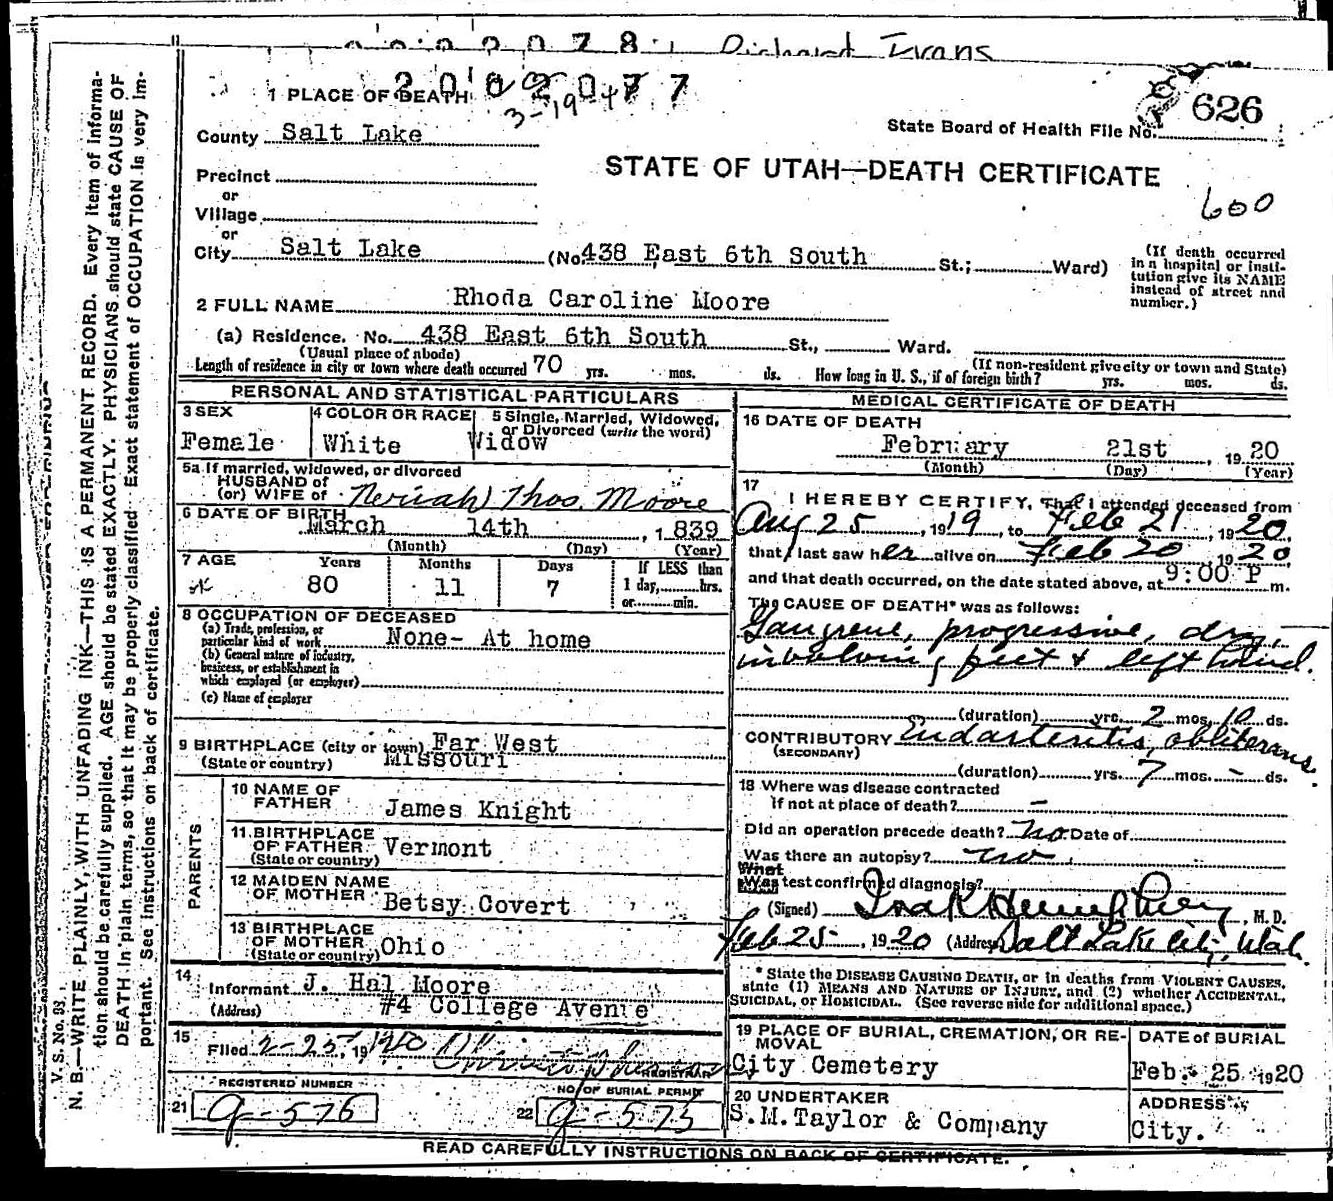 Richard Evans
2002077
3-19-4
1 PLACE OF DEATH
626
State Board of Health File No.
County Salt Lake
STATE OF UTAH—DEATH CERTIFICATE
Precinct
or
Village
600
or
City Salt Lake (No 438 East 6th South St.; Ward)
(If death occurred in a hospital or insti-
tution give its NAME
instead of street and
number.)
2 FULL NAME Rhoda Caroline Moore
(a) Residence. No. 438 East 6th South St., Ward.
(Usual place of abode) (If non-resident give city or town and State)
Length of residence in city or town where death occurred 70 yrs. mos. ds. How long in U. S., if of foreign birth? yrs. mos. ds.
PERSONAL AND STATISTICAL PARTICULARS
3 SEX 4 COLOR OR RACE 5 Single, Married, Widowed,
or Divorced (write the word)
Female White Widow
5a If married, widowed, or divorced
HUSBAND of
(or) WIFE of Neriah Thos. Moore
6 DATE OF BIRTH
March 14th, 1839
(Month) (Day) (Year)
7 AGE Years Months Days If LESS than
80 11 7 1 day, hrs.
or min.
8 OCCUPATION OF DECEASED
(a) Trade, profession, or
particular kind of work None- At home
(b) General nature of industry,
business, or establishment in
which employed (or employer)
(c) Name of employer
9 BIRTHPLACE (city or town) Far West
(State or country) Missouri
PARENTS
10 NAME OF
FATHER James Knight
11 BIRTHPLACE
OF FATHER Vermont
(State or country)
12 MAIDEN NAME
OF MOTHER Betsy Covert
13 BIRTHPLACE
OF MOTHER Ohio
(State or country)
14
Informant J. Hal Moore
(Address) #4 College Avenue
15
Filed 2-25, 1920
REGISTRAR
REGISTERED NUMBER NO. OF BURIAL PERMIT
21 g-576 22 g-575
MEDICAL CERTIFICATE OF DEATH
16 DATE OF DEATH
February 21st, 1920
(Month) (Day) (Year)
17
I HEREBY CERTIFY, That I attended deceased from
Aug 25, 1919, to Feb 21, 1920,
that I last saw her alive on Feb 20 1920
and that death occurred, on the date stated above, at 9:00 P m.
The CAUSE OF DEATH* was as follows:
Gangrene, progressive, dry,
involving feet & left hand.
(duration) yrs. 2 mos. 10 ds.
CONTRIBUTORY Endarteritis, obliterans.
(SECONDARY)
(duration) yrs. 7 mos. - ds.
18 Where was disease contracted
if not at place of death? -
Did an operation precede death? No Date of
Was there an autopsy? no
What
Was test confirmed diagnosis?
(Signed) Ira K Humphrey, M. D.
Feb 25, 1920 (Address) Salt Lake City, Utah.
* State the DISEASE CAUSING DEATH, or in deaths from VIOLENT CAUSES,
state (1) MEANS AND NATURE OF INJURY, and (2) whether ACCIDENTAL,
SUICIDAL, or HOMICIDAL. (See reverse side for additional space.)
19 PLACE OF BURIAL, CREMATION, OR RE-
MOVAL
City Cemetery
DATE of BURIAL
Feb. 25 1920
20 UNDERTAKER
S.M. Taylor & Company
ADDRESS
City.
READ CAREFULLY INSTRUCTIONS ON BACK OF CERTIFICATE.
V. S. No. 93.
N. B.—WRITE PLAINLY, WITH UNFADING INK—THIS IS A PERMANENT RECORD. Every item of informa-
tion should be carefully supplied. AGE should be stated EXACTLY. PHYSICIANS should state CAUSE OF
DEATH in plain terms, so that it may be properly classified. Exact statement of OCCUPATION is very im-
portant. See instructions on back of certificate.